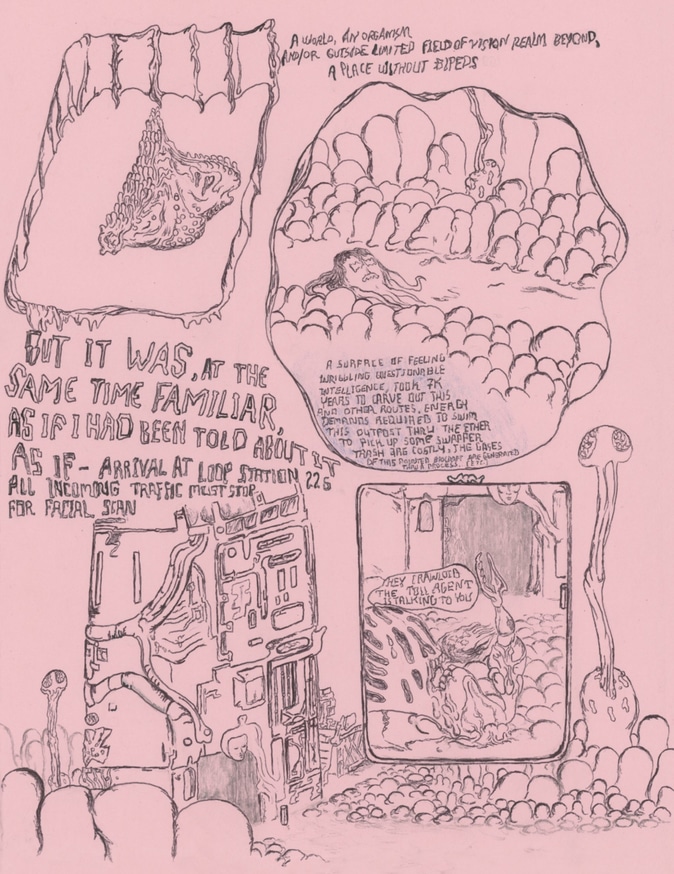 A WORLD, AN ORGANISM
AND/OR OUTSIDE LIMITED FIELD OF VISION REALM BEYOND,
A PLACE WITHOUT BIPEDS
BUT IT WAS, AT THE
SAME TIME FAMILIAR,
AS IF I HAD BEEN TOLD ABOUT IT
AS IF - ARRIVAL AT LOOP STATION 226
ALL INCOMING TRAFFIC MUST STOP
FOR FACIAL SCAN
A SURFACE OF FEELING
WRIGGLING QUESTIONABLE
INTELLIGENCE, TOOK 7K
YEARS TO CARVE OUT THIS
AND OTHER ROUTES, ENERGY
DEMANDS REQUIRED TO SWIM
THIS OUTPOST THRU THE ETHER
TO PICK UP SOME SWAPPER
TRASH ARE COSTLY, THE GASES
OF THIS ARE GENERATED
THRU A PROCESS. (ETC.)
HEY CRAWLOID
THE TOLL AGENT
IS TALKING TO YOU